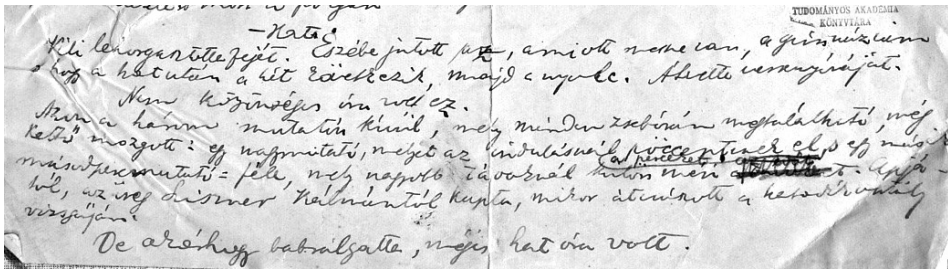 TUDOMÁNYOS AKADÉMIA
KÖNYVTÁRA
– Hat.
Kili lehorgasztotta fejét. Eszébe jutott az, amiott neve van, a gimnázium
s hogy a hat után a hét következik, majd a nyolc. Átvette versenyóráját.
Nem közönséges óra volt ez.
Azon a három mutatón kívül, mely minden zsebórán megtalálható, még
kettő mozgott: egy nagymutató, melyet az indulásnál pöccentenek el, s egy másik
másodpercmutató-féle, mely nagyobb távoknál külön méri a perceket. Apjá-
tól, az öreg Liszner Kálmántól kapta, mikor átcsúszott a hetedik osztály
vizsgáján.
De azért hogy babrálgatta, mégis hat óra volt.